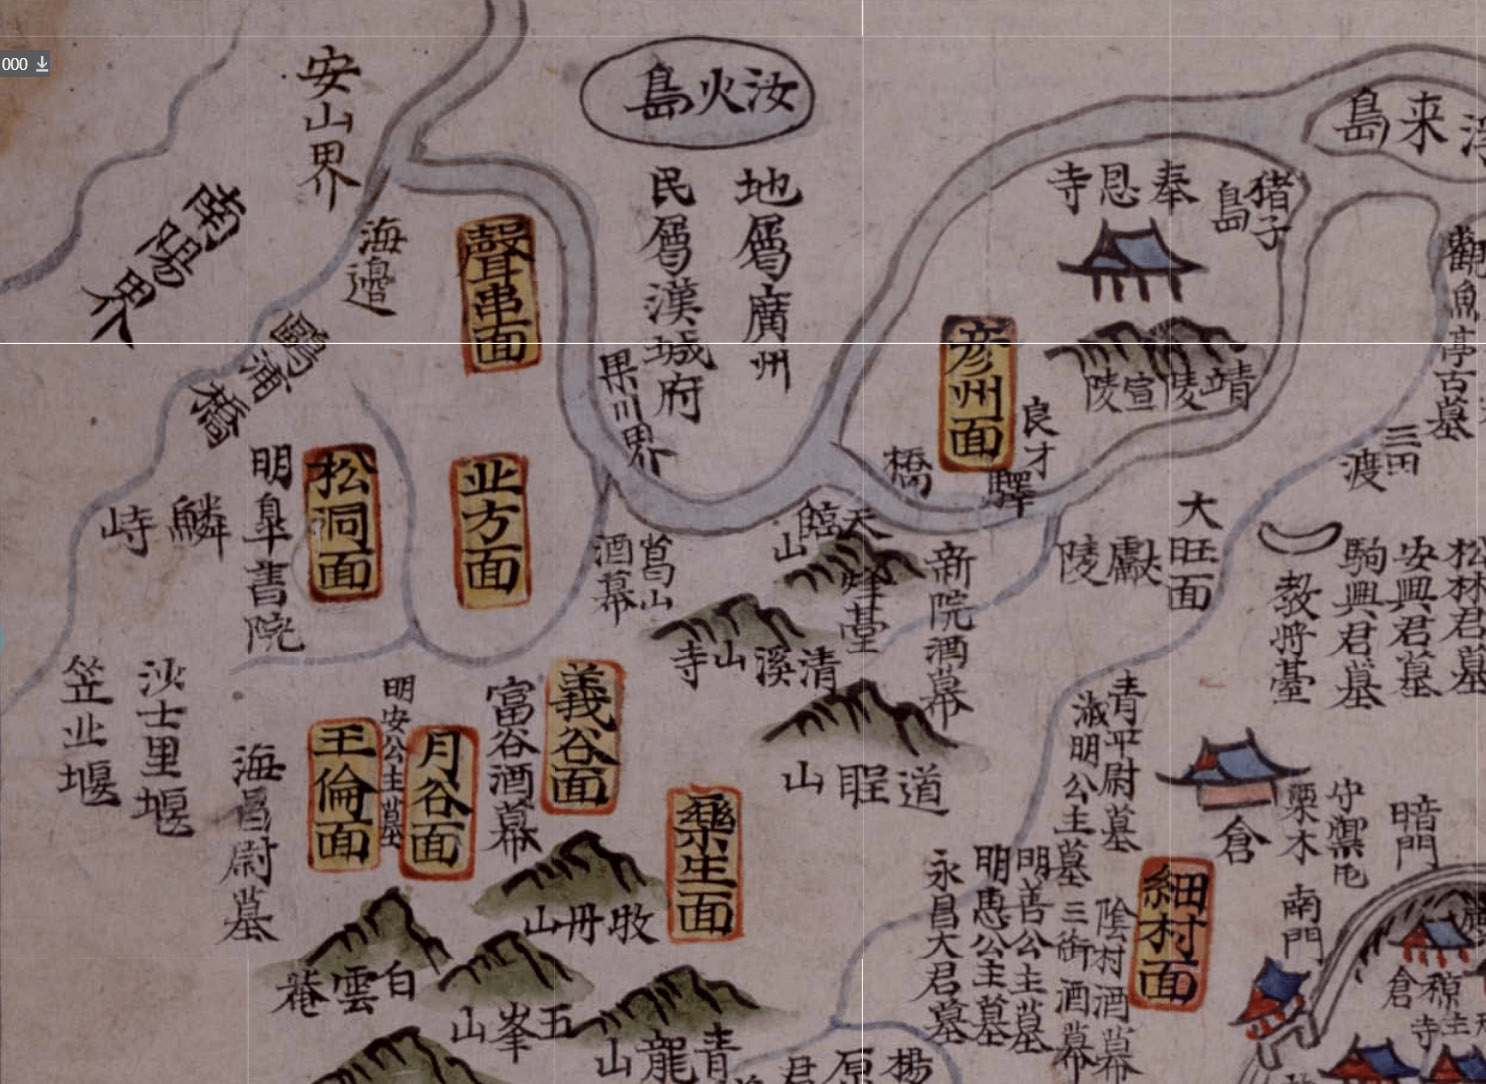 000
安山界
南陽界
海邊
鵬浦橋
聲串面
汝火島
地屬廣州
民屬漢城府
果川界
奉恩寺
猪子島
浮来島
彦州面
靖陵宣陵
良才驛
橋
觀魚亭古墓
三田渡
明皐書院
松洞面
北方面
鱗峙
酒幕
天臨山
烽臺
清溪山寺
新院酒幕
獻陵
大旺面
教將臺
駒興君墓
安興君墓
松林君墓
笠北堰
沙士里堰
海昌尉墓
王倫面
明安公主墓
月谷面
富谷酒幕
義谷面
樂生面
牧丹山
白雲菴
五峯山
青龍山
青平尉墓
淑明公主墓
三街酒幕
明善公主墓
明惠公主墓
永昌大君墓
陰村酒幕
細村面
倉
栗木
暗門
南門
倉